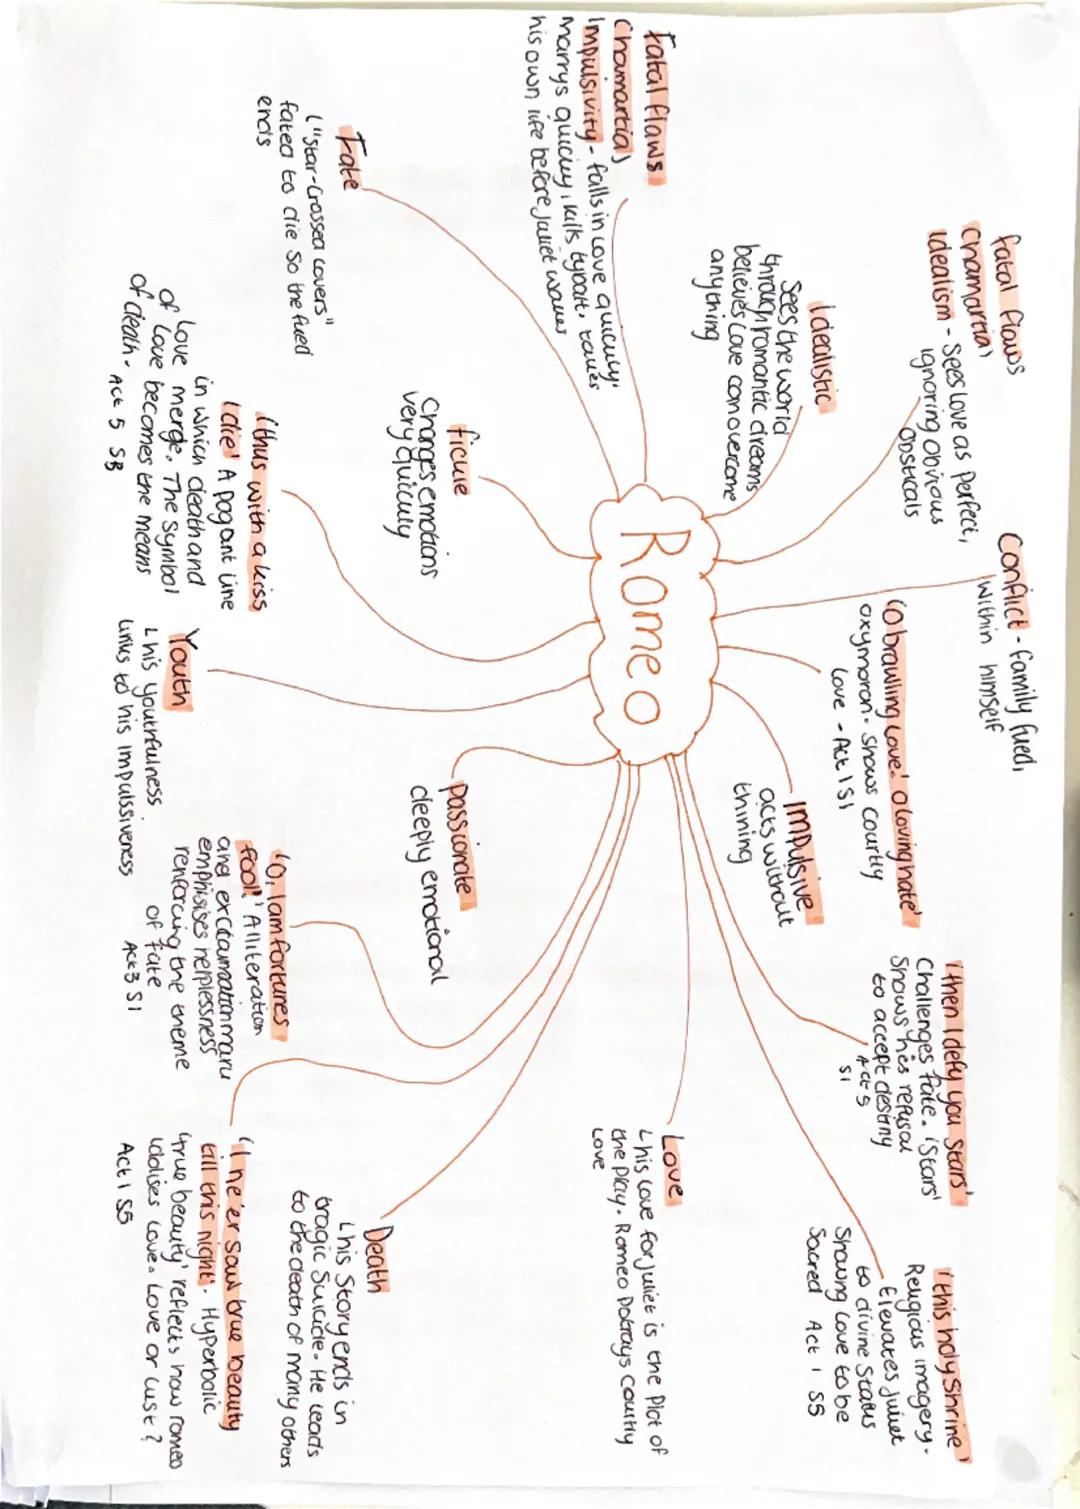 fatal flaws
(hamartia)
idealism - Sees love as perfect,
ignoring obvious
obsticals
Conflict - family fued,
within himself
'O brawling love! O loving hate'
oxymoron. Shows courtly
love - Act 1 S1
'then I defy you stars'
Challenges fate. 'Stars'
Shows his refusal
to accept destiny
Act 5
S1
'this holy shrine'
Religious imagery.
Elevates Juliet
to divine status
Showing love to be
Sacred Act 1 S5
Idealistic
Sees the world
through romantic dreams
believes love can overcome
anything
Impulsive
acts without
thining
fatal flaws
(hamartia)
Impulsivity - falls in love quickly,
marrys quickly, kills tybalt, takes
his own life before Juliet wakes
Romeo
Love
↳ his love for Juliet is the plot of
the play. Romeo Potrays courtly
love
fickle
Changes emotions
very quickly
passionate
deeply emotional
Fate
↳ "star-crossed lovers"
fated to die so the fued
ends
Death
↳ his story ends in
tragic suicide. He leads
to the death of many others
'thus with a kiss
I die' A pogant line
in which death and
love merge. The symbol
of love becomes the means
of death. Act 5 S3
Youth
↳ his youthfulness
links to his impulssiveness
'O, I am fortunes
fool!' Alliteration
and exclamation maru
emphisises helplessness
renforcing the theme
of fate
Act 3 S1
'I ne'er saw true beauty
till this night'. Hyperbolic
'true beauty' reflects how romeo
idolises love. Love or lust?
Act 1 S5